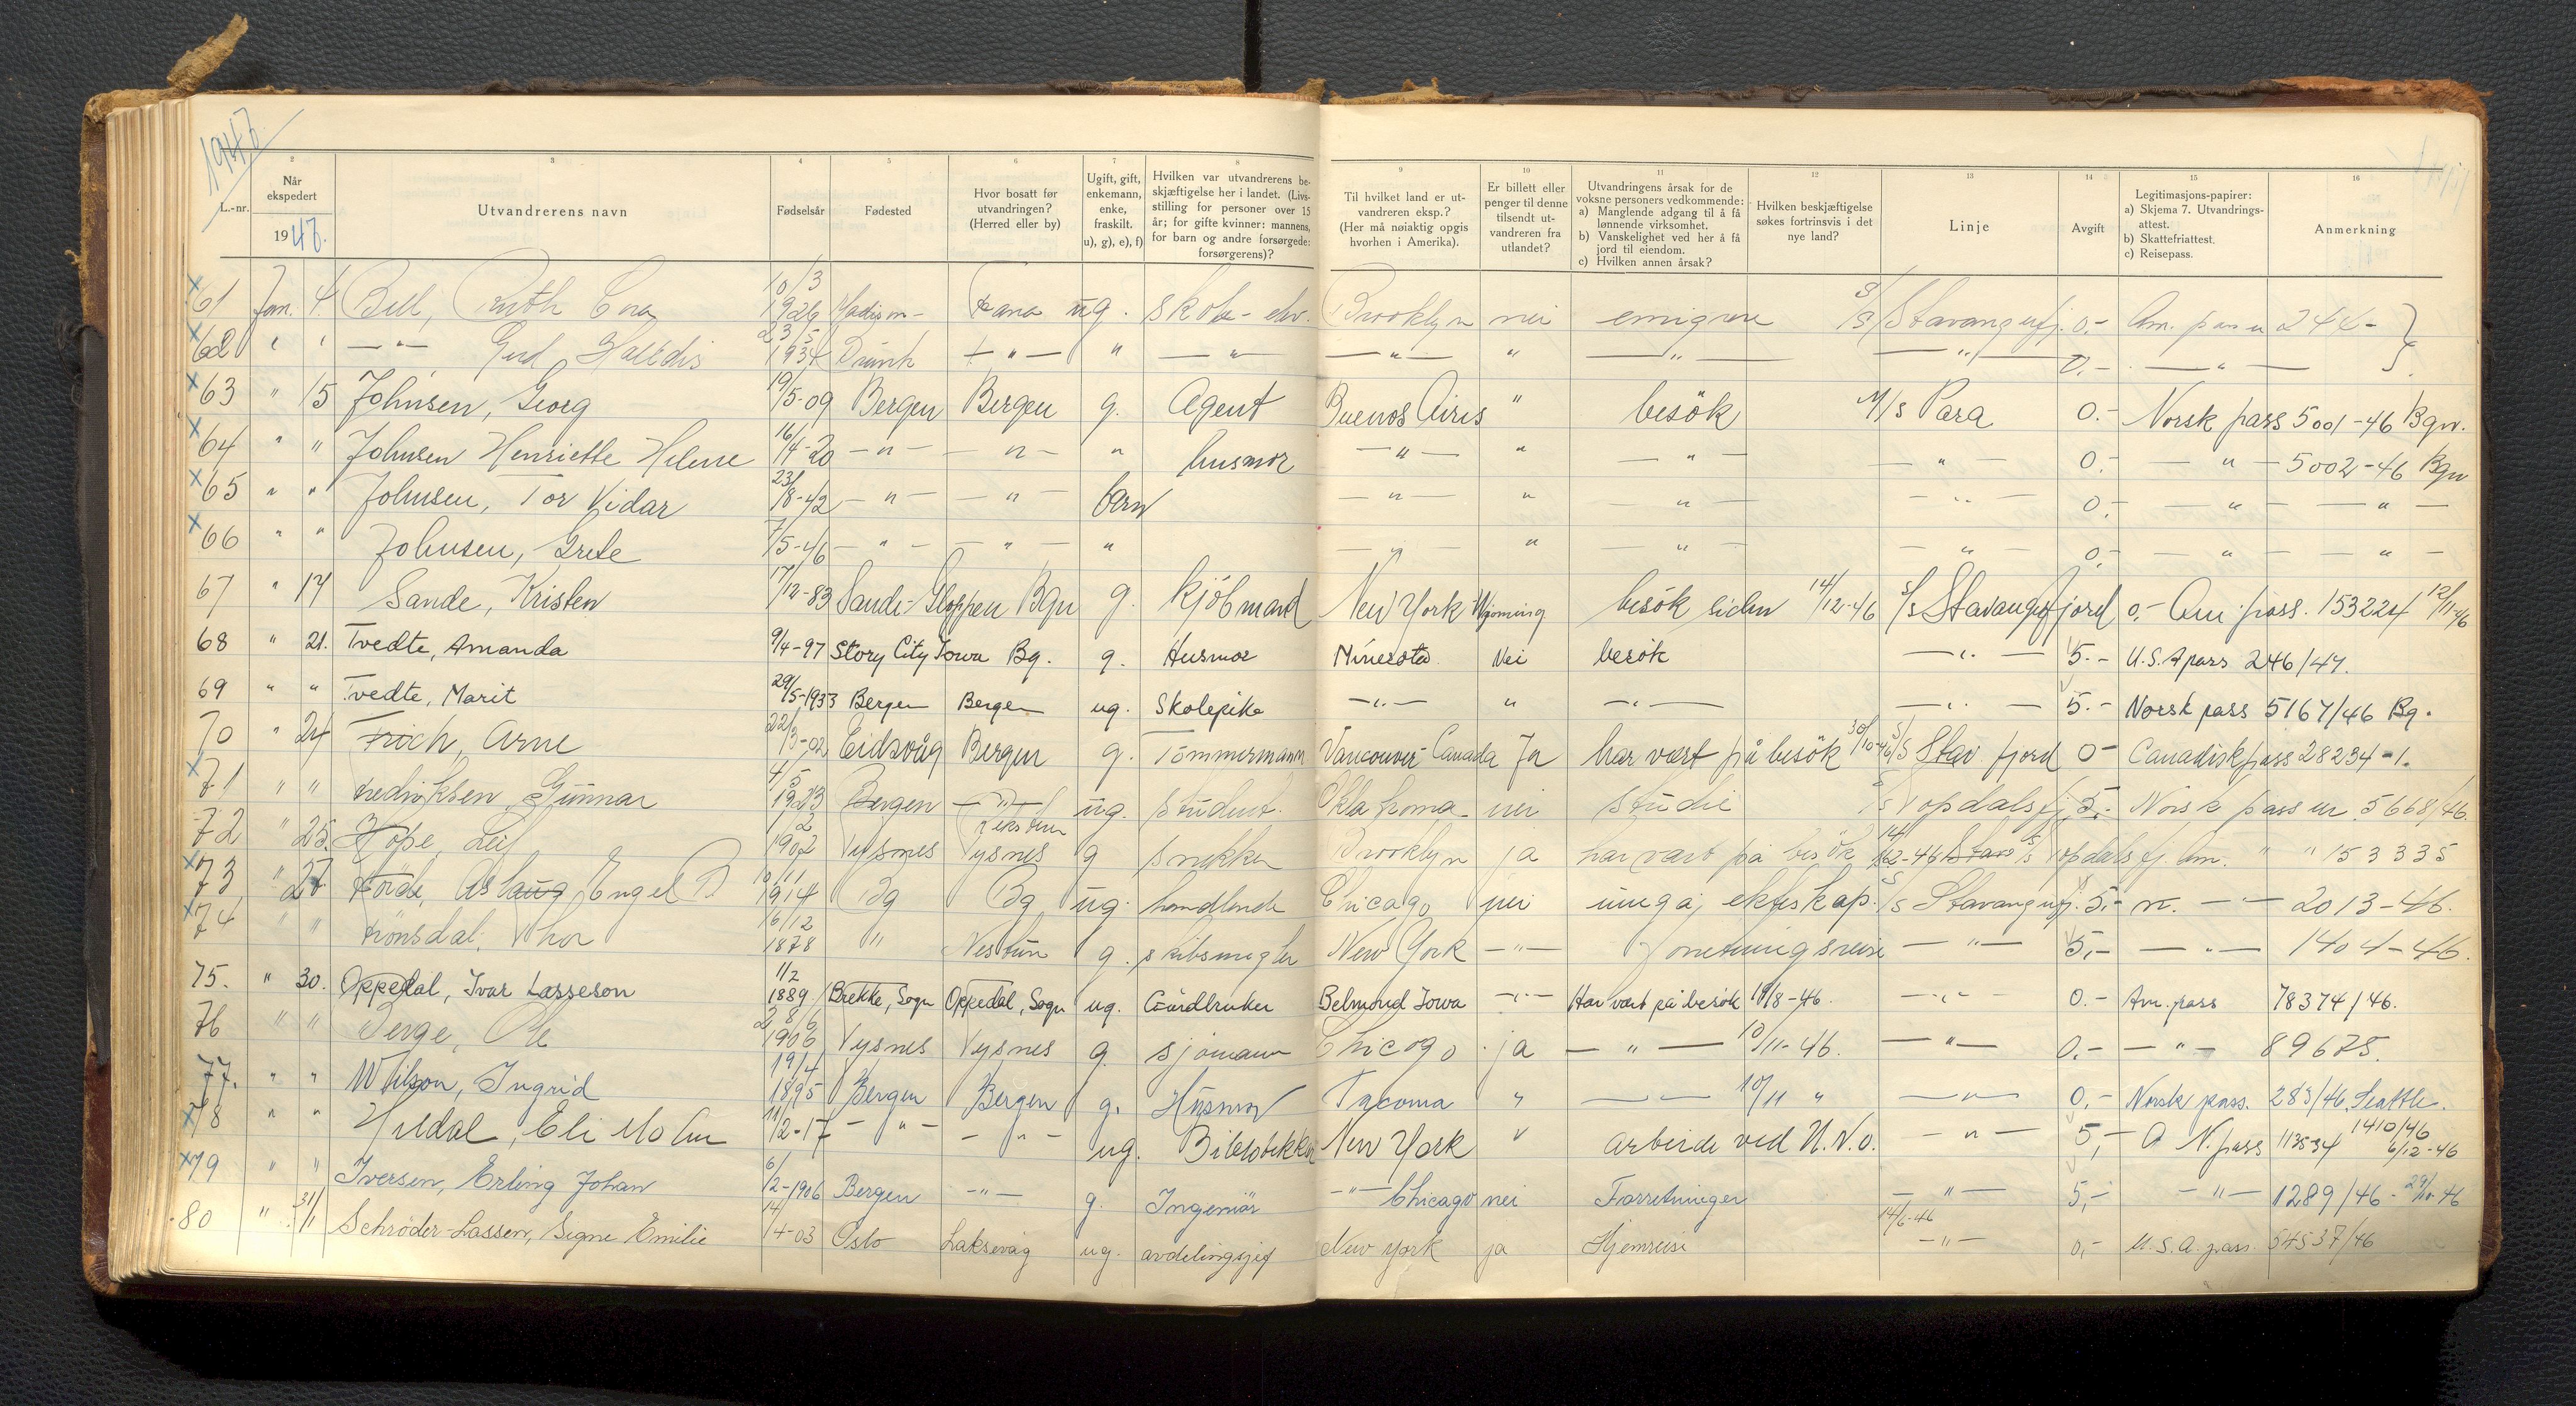 1947
L.-nr.
2 Når ekspedert 1947.
3 Utvandrerens navn
4 Fødselsår
5 Fødested
6 Hvor bosatt før utvandringen? (Herred eller by)
7 Ugift, gift, enkemann, enke, fraskilt. u), g), e), f)
8 Hvilken var utvandrerens beskjæftigelse her i landet. (Livsstilling for personer over 15 år; for gifte kvinner: mannens, for barn og andre forsørgede: forsørgerens)?
9 Til hvilket land er utvandreren eksp.? (Her må nøiaktig opgis hvorhen i Amerika).
10 Er billett eller penger til denne tilsendt utvandreren fra utlandet?
11 Utvandringens årsak for de voksne personers vedkommende: a) Manglende adgang til å få lønnende virksomhet. b) Vanskelighet ved her å få jord til eiendom. c) Hvilken annen årsak?
12 Hvilken beskjæftigelse søkes fortrinsvis i det nye land?
13 Linje
14 Avgift
15 Legitimasjons-papirer: a) Skjema 7. Utvandringsattest. b) Skattefriattest. c) Reisepass.
16 Anmerkning
x 61 Jan. 4. Bell, Ruth 10/3 1926 Fana ug. skole-elev. Brooklyn nei emigrere S/S Stavangerfj. 0.- Am. pass 244-
x 62 " " —"— Halldis 1934 —"— " —"— —"— " —"— —"— 0.- —"—
x 63 " 15 Johnsen, Georg 19/5-09 Bergen Bergen g. Agent Buenos Aires " besök M/S Para 0.- Norsk pass 5001-46 Bgn.
x 64 " " Johnsen Henriette Helene 16/4-20 —"— —"— " husmor —"— " —"— —"— 0.- —"— 5002-46 Bgn
x 65 " " Johnsen, Tor Vidar 23/8-42 —"— —"— barn —"— " —"— —"— 0.- —"— —"—
x 66 " " Johnsen, Grete 7/5-46 —"— —"— " —"— " —"— —"— 0.- —"— —"—
67 " 17 Sande, Kristen 17/12-83 Sande-Gloppen Bgn g. kjöbmand New York Wyoming besök siden 14/12-46 S/S Stavangerfjord 0.- Am pass. 153224 12/11-46
68 " 21. Tvedte, Amanda 9/4-97 Story City Iowa Bg. g. Husmor Minesota. Nei besök —"— 5.- U.S.A pass 246/47.
69 " " Tvedte, Marit 29/5-1933 Bergen Bergen ug. Skolepike —"— " —"— —"— 5.- Norsk pass 5167/46 Bg.
70 " 24 Froch, Arne 22/3-02 Eidsvåg Bergen g. Tömmermann Vancouver-Canada Ja har vært på besök 30/10-46 S/S Stav. fjord 0- Canadisk pass 28234-1.
x 71 " " Fredriksen, Gunnar 4/5 1923 Bergen —"— ug. student. Oklahoma nei studie S/S Vopdalsfj. 5.- Norsk pass nr. 5668/46.
72 " 25. Hope, Leif 1/2 1902 g snekker Brooklyn ja har vært på besök 14/12-46 Stav S/S Vopdalsfj. Am. " " 153335
x 73 " 27 Aslaug Engel B 10/11 1914 Bg Bg ug. handlende Chicago nei inngå ekteskap. S/S Stavangerfj. 5.- n. —"— 2013-46.
x 74 " " Thor 16/12 1878 " Nesttun g. skibsmegler New York —"— Forretningsreise —"— 5,- —"— 1404-46.
75. " 30. Oppedal, Ivar Lasseson 11/2 1889 Brekke, Sogn Oppedal, Sogn ug. Gårdbruker Belmond Iowa —"— Har vært på besök 19/8-46. —"— 0.- Am. pass 78374/46.
76 " " Berge, Ole 28/6 1906 g. sjömann Chicago ja —"— 10/11-46. —"— 0.- —"— 89675.
77. " " Wilson, Ingrid 19/4 1895 Bergen Bergen g. Husmor Tacoma " —"— 10/11 " —"— 0,- Norsk pass. 283/46. Seattle.
x 78 " " Hildal, Eli Molun 11/2-17 —"— —"— ug. Bibliotekker New York " arbeide ved U.N.O. —"— 5,- a N. pass 113534 1410/46 6/12-46
x 79 " " Iversen, Erling Johan 6/2-1906 Bergen —"— g. Ingeniör —"— Chicago nei Forretninger —"— 5,- —"— 1289/46 - 29/10-46
80 " 31/1 Schröder-Lassen, Signe Emilie 14/4-03 Oslo Laksevåg ug. avdelingssjef New York ja Hjemreise 14/6-46 —"— 0,- U.S.A. pass. 54537/46